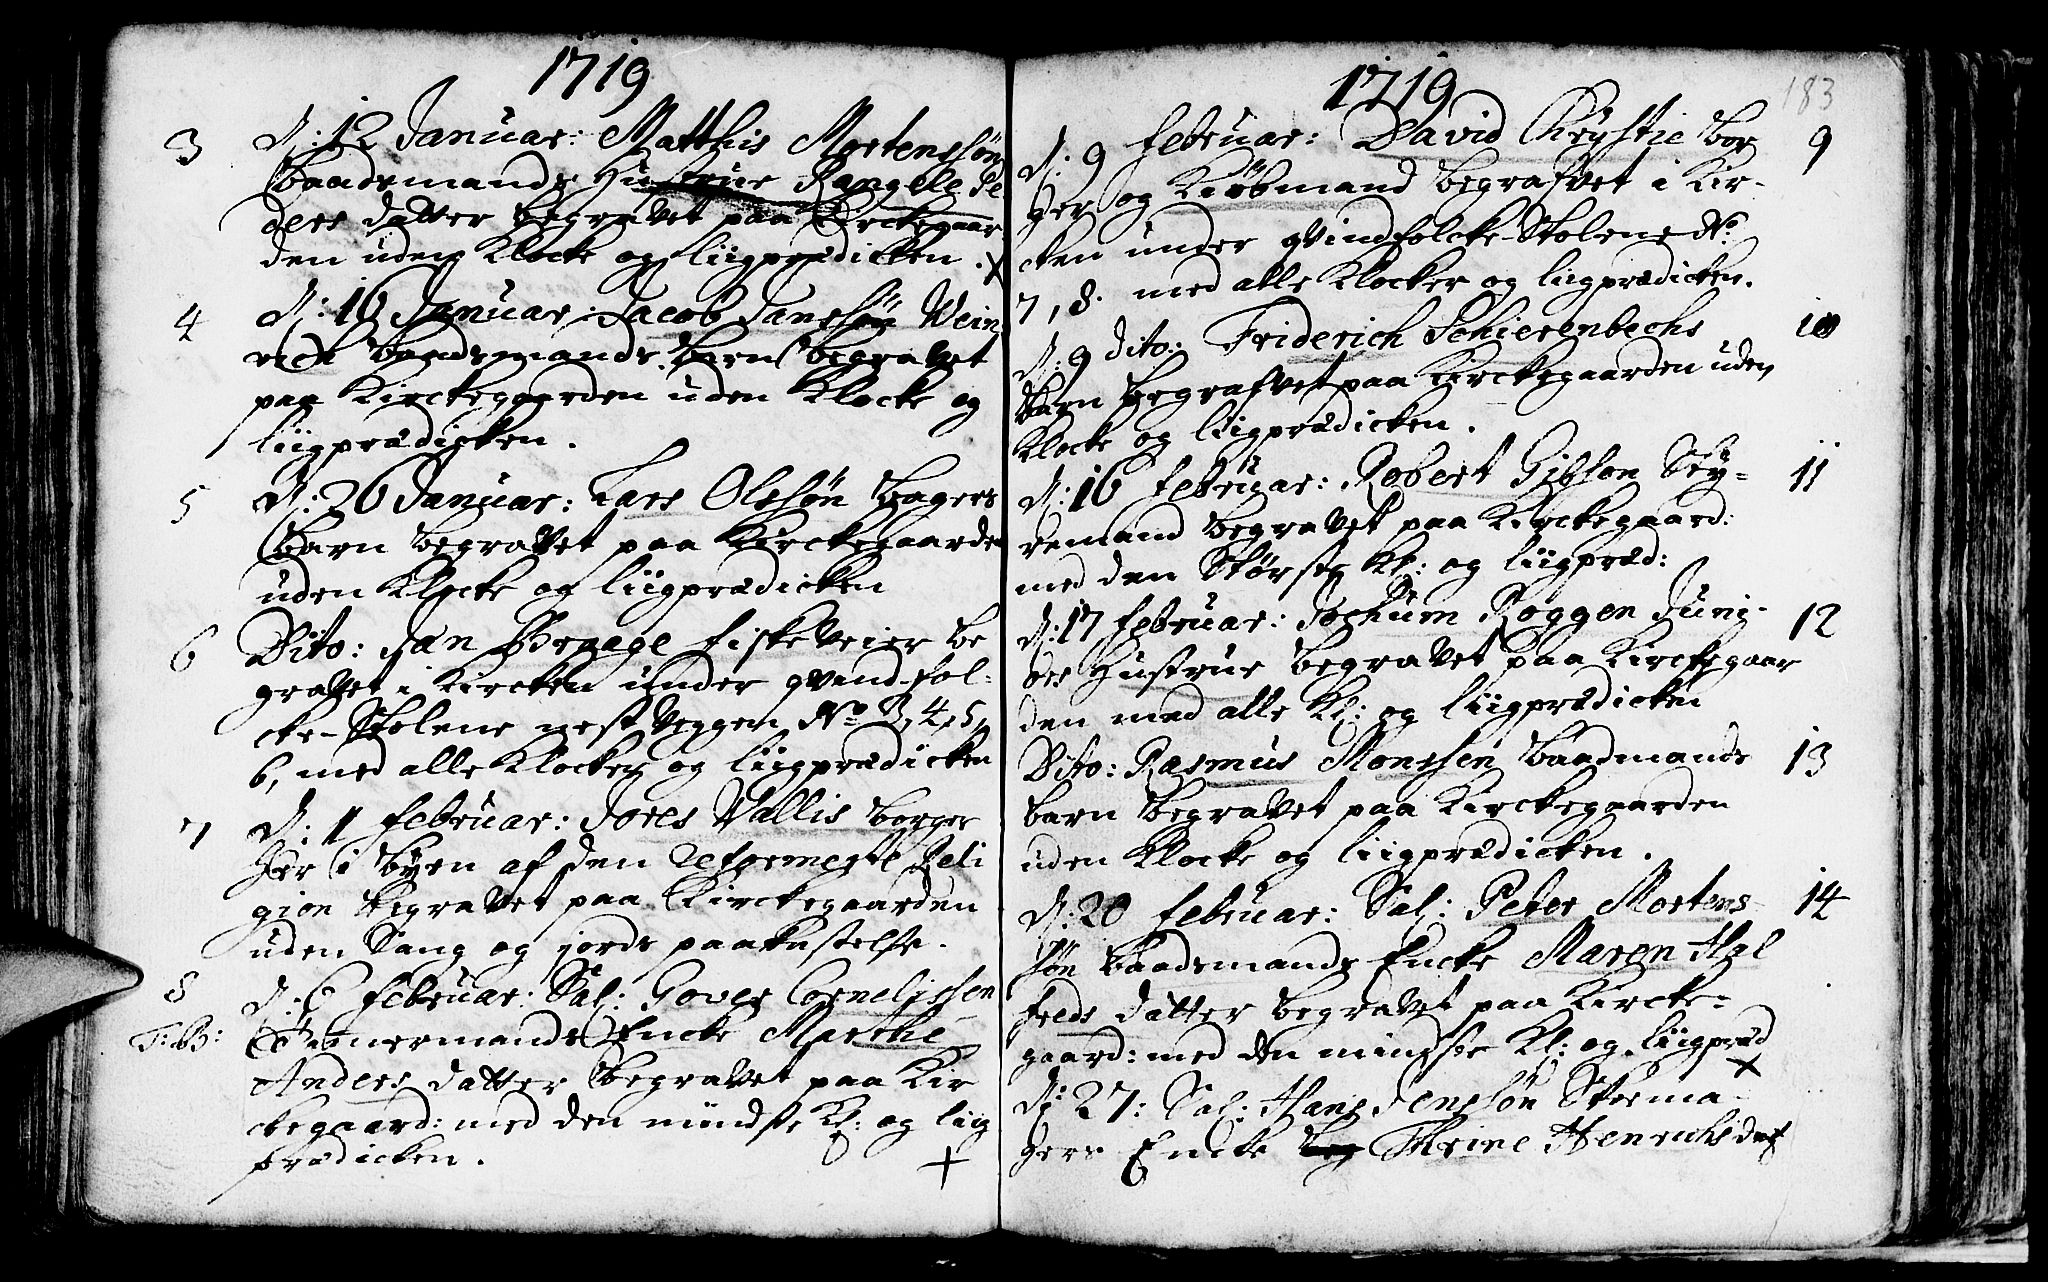 1719
3 D: 12 Januar: Matthis Mortenssøn
Baadsmands Hustrue Rangele Pe
ders datter begravet paa Kirckegaar
den uden Klocke og liigprædicken. x
4 D: 16 Januar: Jacob Janssøn Wein
rich baadsmands barn begravet
paa Kirckegaarden uden Klocke og
liigprædicken.
5 D: 26 Januar: Lars Olssøn bagers
barn begravet paa Kirckegaarden
uden Klocke og liigprædicken
6 Dito: Jan fiskeveier be
gravet i Kircken under qvind-fol-
cke-Stolene nest veggen No 3, 4, 5,
6, med alle Klocker og liigprædicken
7 D: 1 Februar: Jores Wallis borger
her i byen af den reformerte Reli
gion begravet paa Kirckegaarden
uden Sang og jords paakastelse.
8 D: 6 Februar: Sal: Gover Cornelissen
T: B: Timmermands Encke Marthe
Anders datter begravet paa Kir
ckegaard: med den mindste Kl: og liig
prædicken. +
1719
183
D: 9 Februar: David Chrystie bor 9
ger og Kiøbmand begrafvet i Kir-
cken under qvindfolcke-Stolene No
7, 8. med alle Klocker og liigprædicken.
D: 9 dito: Friderich Schierenbechs 10
barn begrafvet paa Kirckegaarden uden
Klocke og liigprædicken.
D: 16 Februar: Robert Gibson Sty= 11
remand begravet paa Kirckegaard:
med den Største Kl: og liigpræd:
D: 17 Februar: Jochum Roggen Juni- 12
ors Hustrue begravet paa Kirckegaar
den med alle Kl: og liigprædicken
Dito: Rasmus Monssen baadmands 13
barn begravet paa Kirckegaarden
uden Klocke og liigprædicken.
D: 20 Februar: Sal: Peter Mortens- 14
søn baadsmands Encke Maren Hal
freds datter begravet paa Kircke-
gaard: med den mindste Kl: og liigpræd
x
D: 27: Sal: Hans Jenssøn Skoma-
gers Encke Thrine Henrichsdat